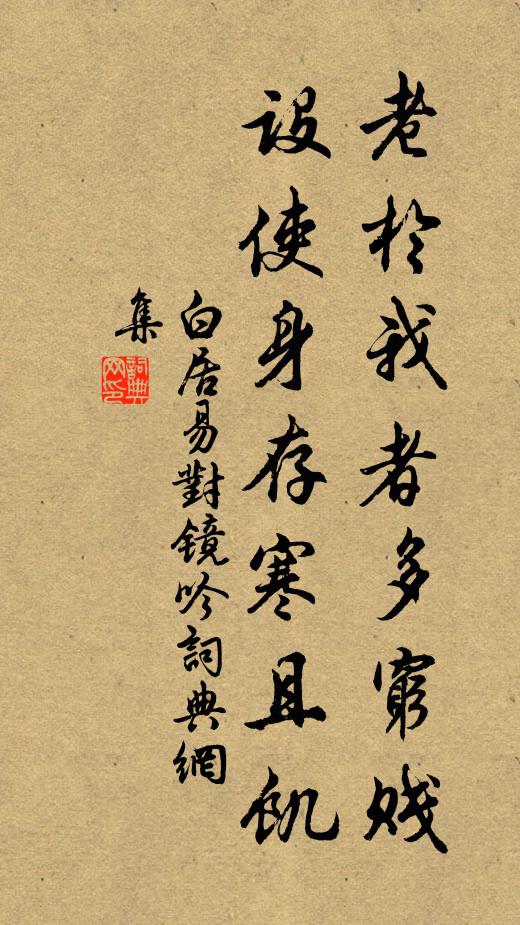 老於我者多窮賤
設使身存寒且飢
白居易對鏡吟詞典網
集
詞典
网印